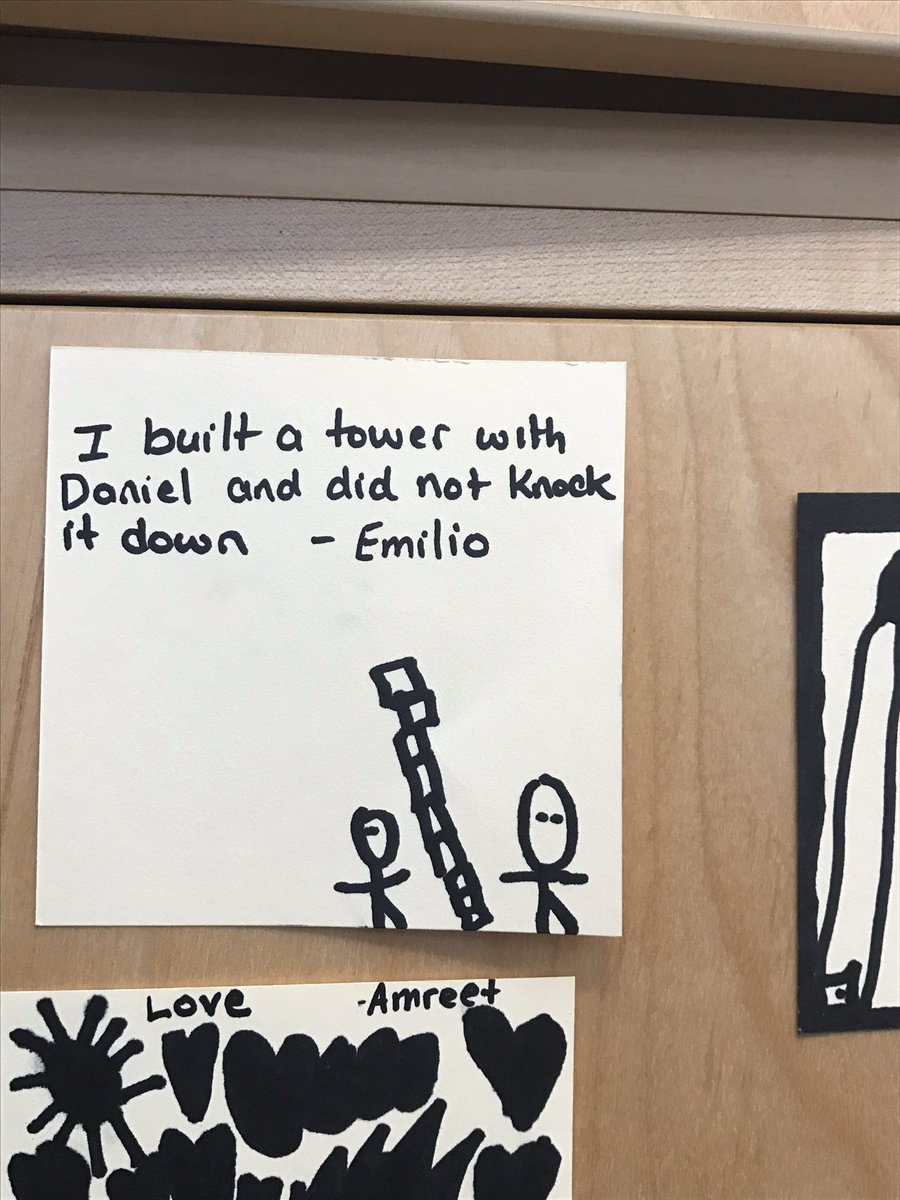 I built a tower with
Daniel and did not knock
it down - Emilio
Love -Amreet